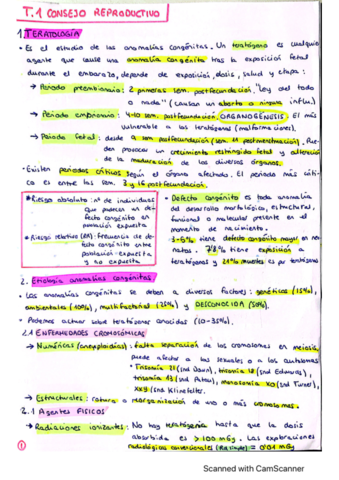 T.1 CONSEJO REPRODUCTIVO
1. TERATOLOGÍA
• Es el estudio de las anomalías congénitas. Un teratógeno es cualquier
agente que cause una anomalía congénita tras la exposición fetal
durante el embarazo, depende de exposición, dosis, salud y etapa:
→ Periodo preembrionario: 2 primeras sem. postfecundación. "Ley del todo
o nada" (causan un aborto o ninguna influ.)
→ Periodo embrionario: 4-10 sem. postfecundación. ORGANOGÉNESIS. El más
vulnerable a los teratógenos (malformaciones).
→ Periodo fetal: desde sem postfecundación (sem. 11 postmenstruación). Pue-
den provocar un crecimiento restringido fetal y alteración
de la maduración de los diversos órganos.
• Existen periodos críticos según el órgano afectado. El periodo más críti-
co es entre las sem. 3 y 16 postfecundación.
• Riesgo absoluto: nº de individuos
que padecen un de-
fecto congénito en
población expuesta
• Riesgo relativo (RR): frecuencia de de-
fecto congénito entre
población expuesta
y no expuesta
• Defecto congénito es toda anomalía
del desarrollo morfológico, estructural,
funcional o molecular presente en el
momento de nacimiento.
3-6% tiene defecto congénito mayor en neo-
natos. tiene exposición a
teratógenos y 21% muertes es por teratógeno
2. Etiología anomalías congénitas
• Las anomalías congénitas se deben a diversos factores: genéticas (15%),
ambientales (10%), multifactorial (25%) y DESCONOCIDA (50%).
• Podemos actuar sobre teratógenos conocidos (10-35%).
2.1 ENFERMEDADES CROMOSÓMICAS
→ Numéricas (aneuploidías): falta separación de los cromosomas en meiosis,
puede afectar a los sexuales o a los autosomas
• Trisomía 21 (snd Down), trisomía 18 (snd Edwards),
trisomía 13 (snd Patau), monosomía X0 (snd Turner),
XXY (snd Klinefelter).
→ Estructurales: rotura o reorganización de uno o más cromosomas.
2.1 AGENTES FÍSICOS
→ Radiaciones ionizantes: No hay teratogenia hasta que la dosis
absorbida es > 100 mGy. Las exploraciones
radiológicas convencionales = 0'01 mGy
1
Scanned with CamScanner